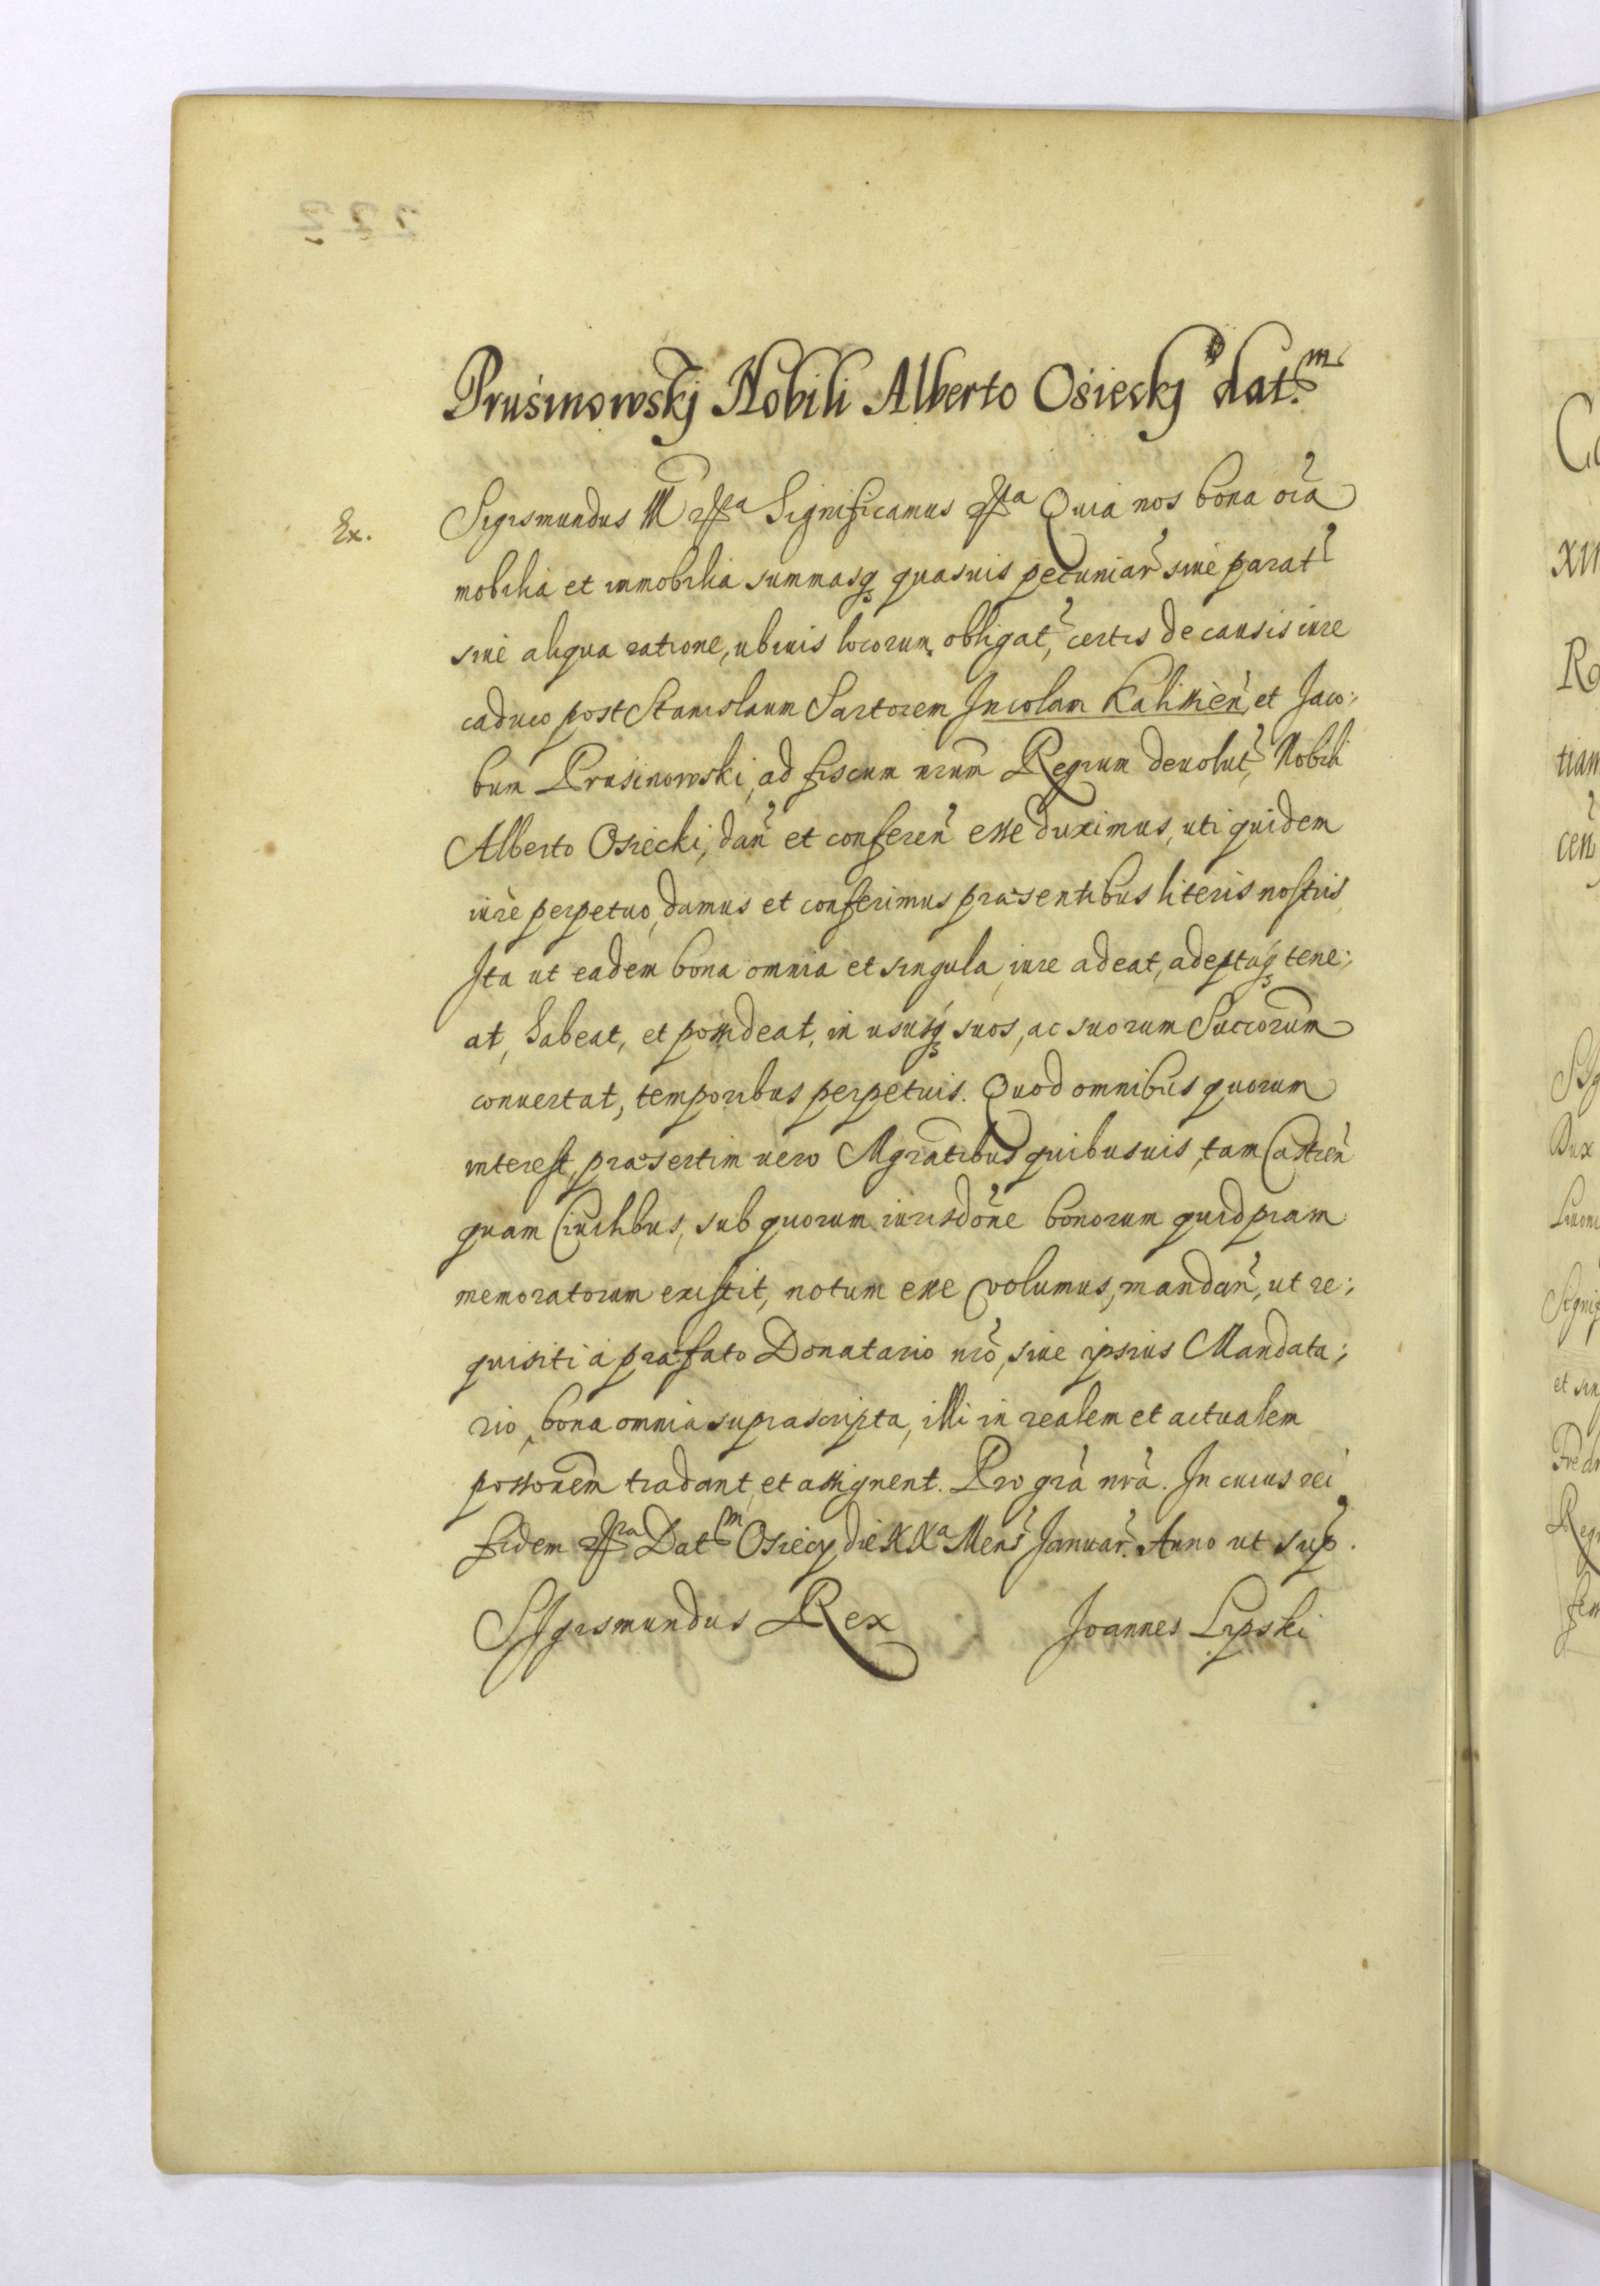 Pruśinowskj Nobili Alberto Ośieckj dat.m
Ex.
Sigismundus III etcra Significamus etcra Quia nos bona oı̃a
mobilia et immobilia summasq; quasuis pecuniar̃ siue parat̃
siue aliqua ratione, ubiuis locorum obligat̃, certis de causis iure
caduco post Stanislaum Sartorem Incolam Kalissien̄, et Jaco:
bum Pruśinowski, ad fiscum nrum̃ Regium deuolut̃, Nobili
Alberto Osiecki, dañ et conferen̄ esse duximus, uti quidem
iure perpetuo, damus et conferimus præsentibus literis nostris,
Ita ut eadem bona omnia et singula, iure adeat, adeptaq; tene:
at, habeat, et possideat, in ususq; suos, ac suorum Succorum̃
conuertat, temporibus perpetuis. Quod omnibus quorum
interest, præsertim uero Mgratibus̃ quibusuis, tam Castren̄
quam Ciuilibus, sub quorum iurisdoñe bonorum quidpiam
memoratorum existit, notum esse volumus, mandan̄, ut re:
quisiti à præfato Donatario nrõ, siue ipsius Mandata:
rio, bona omnia suprascripta, illi in realem et actualem
possonem̃ tradant, et assignent. Pro grã nrã. In cuius rei
fidem etcra Datm Osiecy die XXa Mens̃ Januar̃. Anno ut sup̃.
Sigismundus Rex
Joannes Lipski